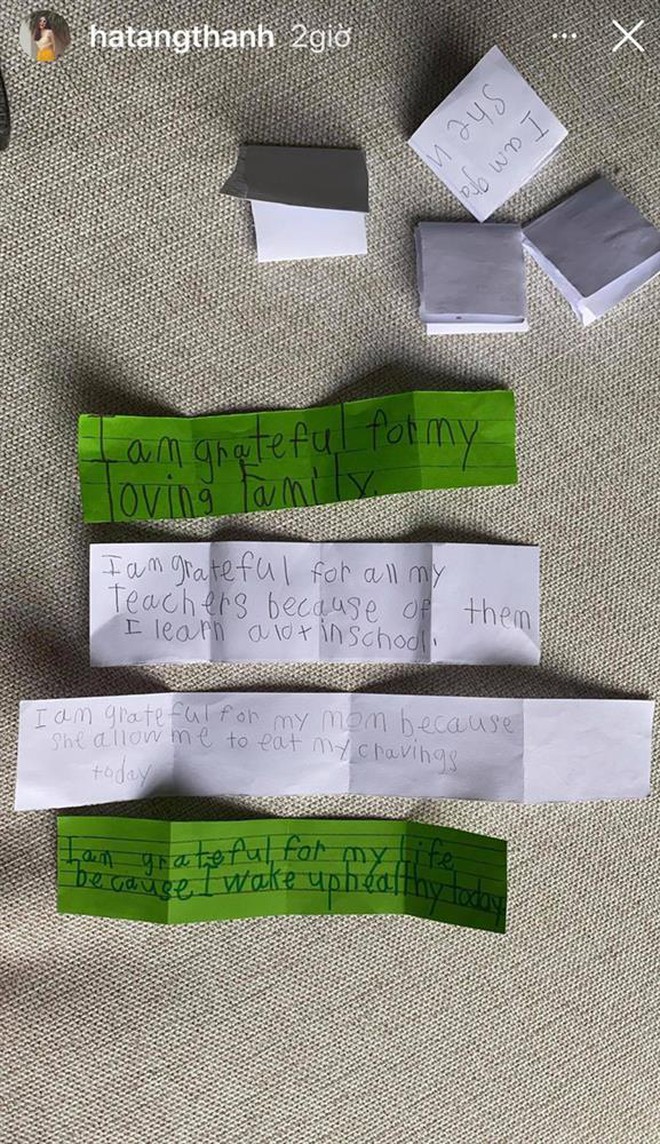 hatangthanh 2giờ
I am gra
she u
I am grateful for my
loving family.
I am grateful for all my
teachers because of them
I learn a lot in school.
I am grateful for my mom because
she allow me to eat my cravings
today
I am grateful for my life
because I wake up healthy today